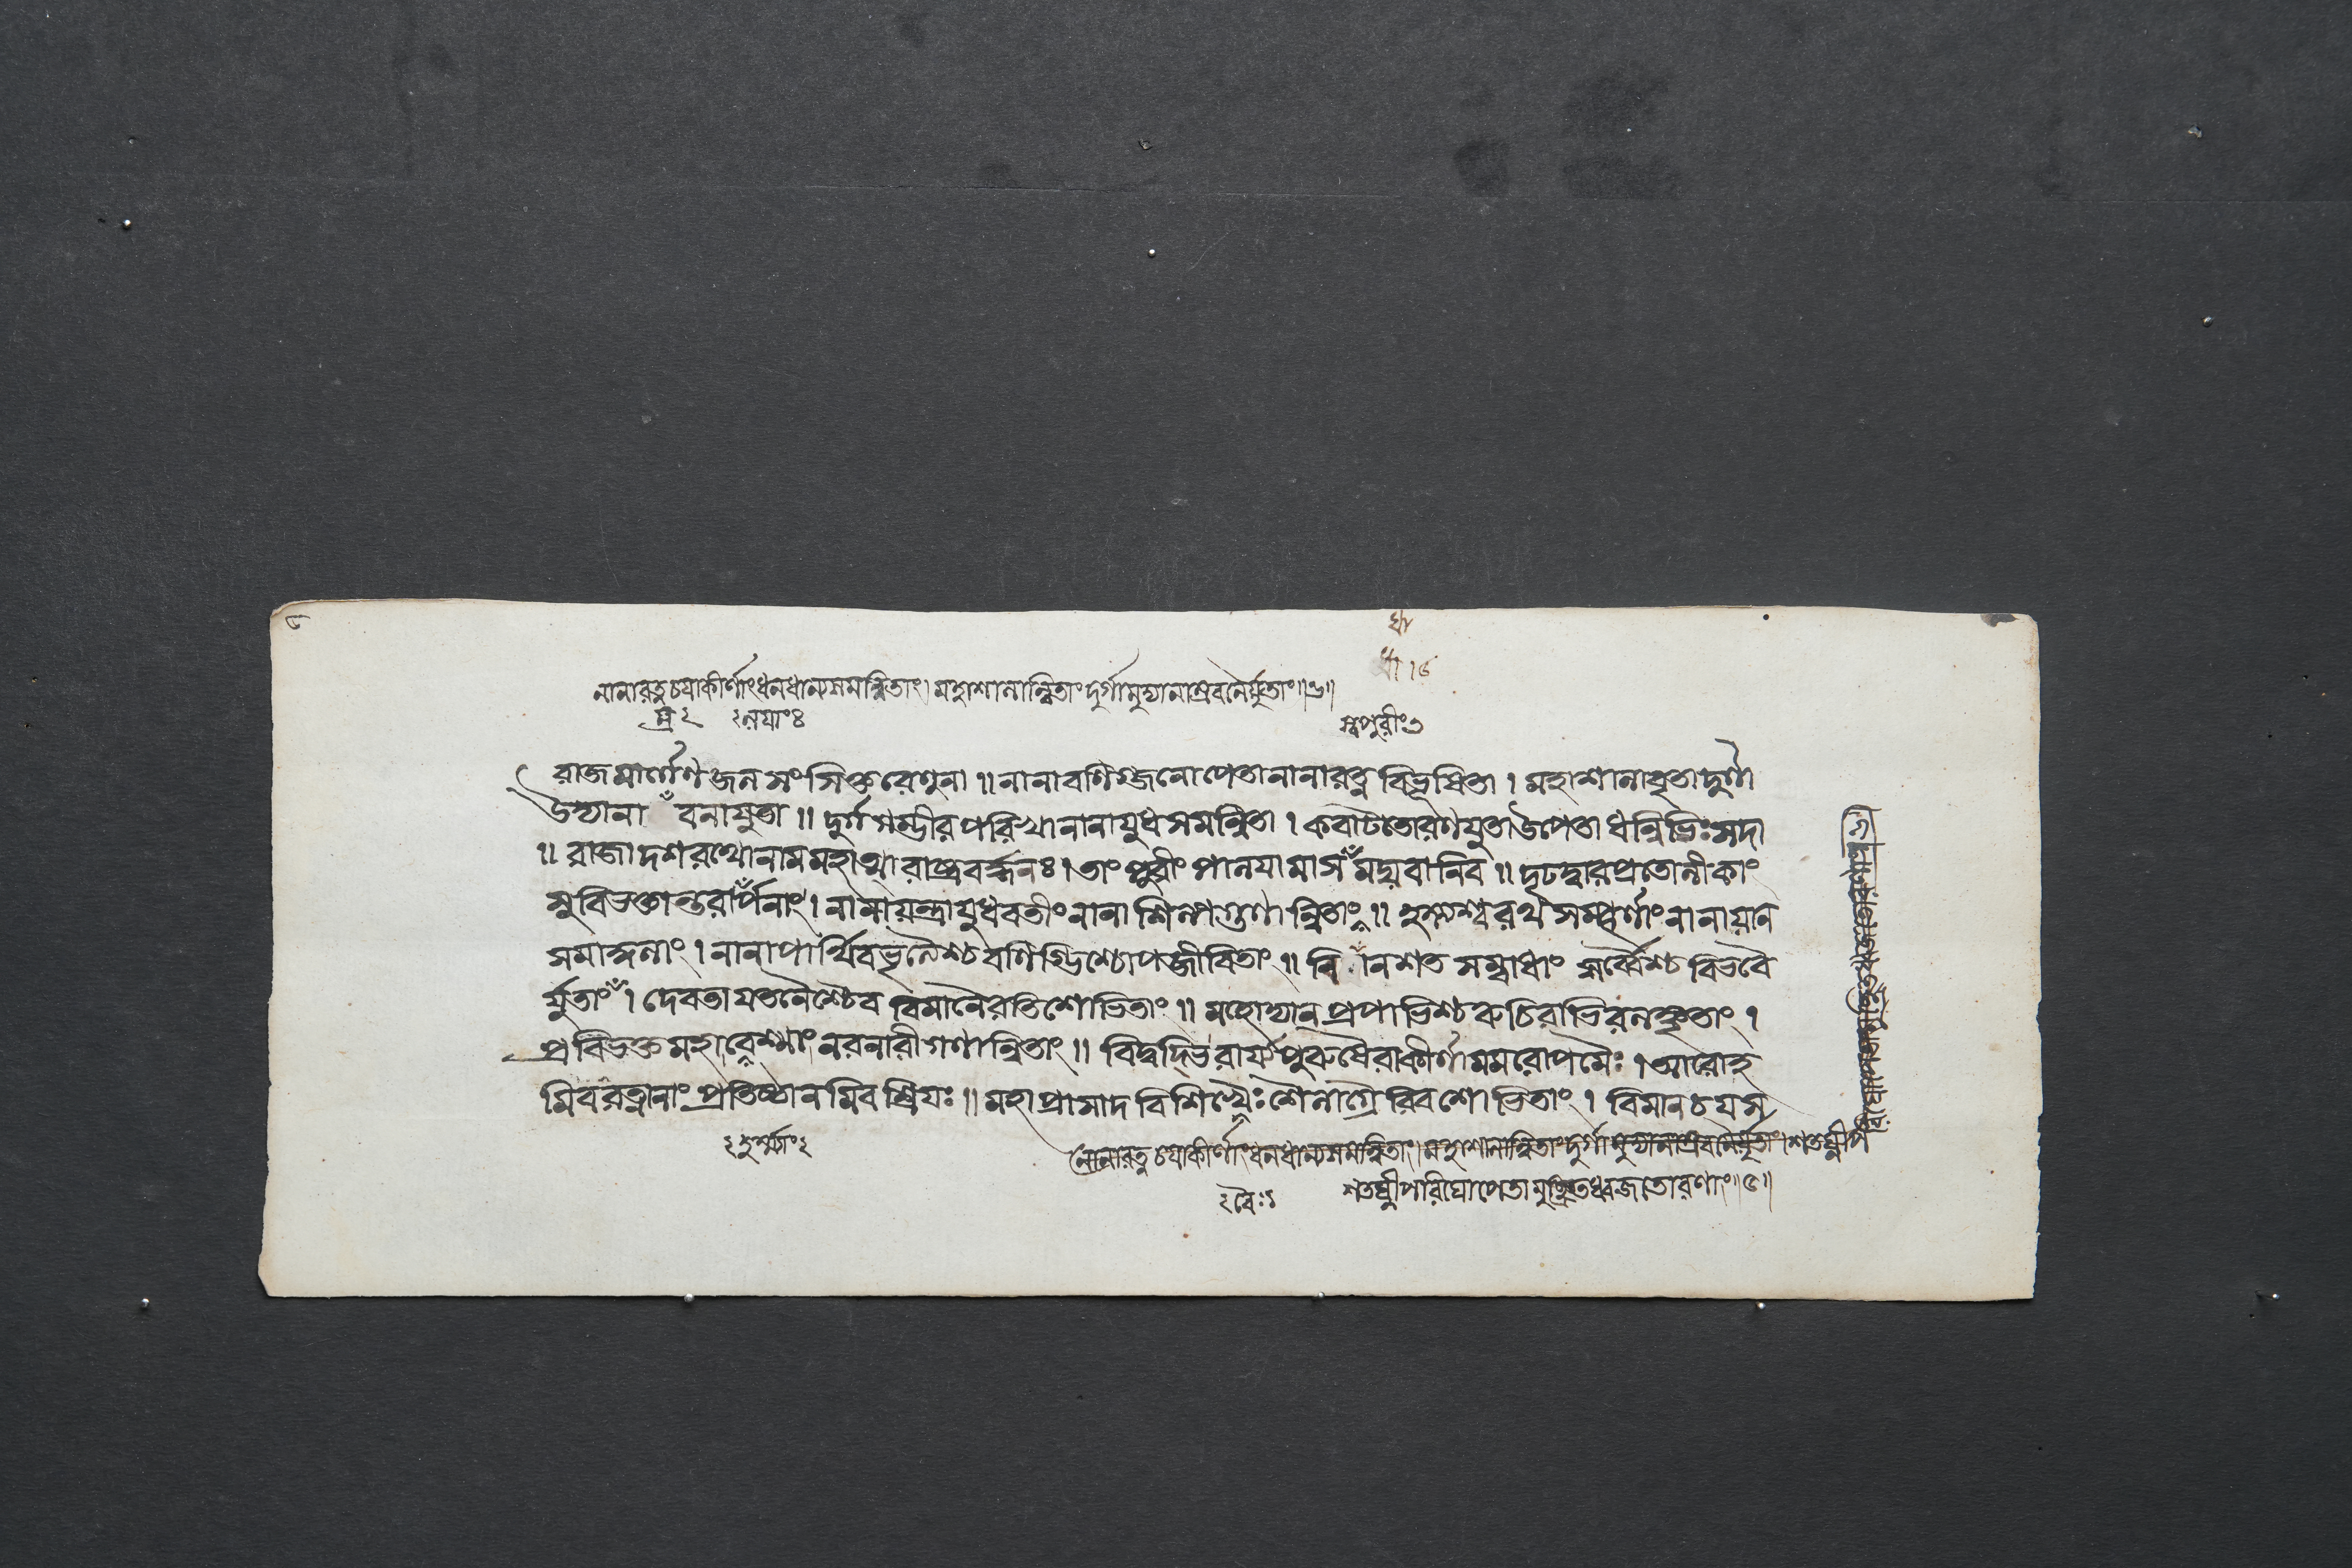 নানারত্নচয়াকীর্ণাং ধনধান্যসমন্বিতাং। মহাশালান্বিতাং দুর্গামুদ্যানাম্রবনৈর্যুতাং॥৬॥
ম্র২ ২লযাং৪
স্বপুরীং৩
রাজমার্গেণ জলসংসিক্তরেণুনা॥ নানাবণিগ্জনোপেতা নানারত্নবিভূষিতা। মহাশালাবৃতা দুর্গা
উদ্যানা বনাযুতা॥ দুর্গগম্ভীরপরিখা নানাযুধসমন্বিতা। কবাটতোরণযুতা উপেতা ধন্বিভিঃ সদা
॥ রাজা দশরথো নাম মহাত্মা রাষ্ট্রবর্দ্ধনঃ। তাং পুরীং পালযামাস মঘবানিব॥ দৃঢদ্বারপ্রতোলীকাং
সুবিভক্তান্তরাপনাং। নানাযন্ত্রাযুধবতীং নানাশিল্পগণান্বিতাং॥ হস্ত্যশ্বরথসম্পূর্ণাং নানাযান
সমাকুলাং। নানাপার্থিবভৃত্যৈশ্চ বণিগ্ভিশ্চোপজীবিতাং॥ বি নশত সম্বাধাং সর্ব্বৈশ্চ বিভবৈ
র্যুতাং। দেবতাযতনৈশ্চৈব বিমানৈরতিশোভিতাং॥ মহোদ্যানপ্রপাভিশ্চ রুচিরাভিরলঙ্কৃতাং।
প্রবিভক্তমহাবেশ্মাং নরনারীগণান্বিতাং॥ বিদ্বদ্ভিরার্যপুরুষৈরাকীর্ণামমরোপমৈঃ। আরোহ
মিব রত্নানাং প্রতিষ্ঠানমিব শ্রিযঃ॥ মহাপ্রাসাদবিশিখৈঃ শৈলাগ্রৈরিব শোভিতাং। বিমানচযস
নানারত্নচয়াকীর্ণাং ধনধান্যসমন্বিতাং। মহাশালান্বিতাং দুর্গামুদ্যানাম্রবনৈর্যুতাং। শতঘ্নীপ
২বৈঃ১ শতঘ্নীপরিঘোপেতামুচ্ছ্রিতধ্বজতোরণাং॥৫॥